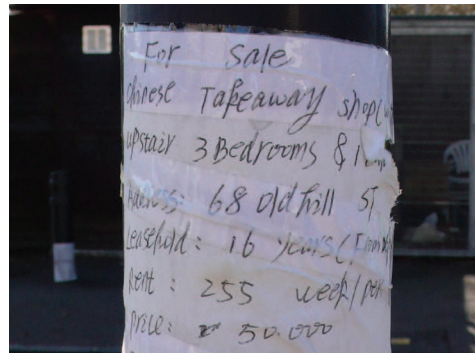 For Sale
chinese Takeaway shop
upstair 3 Bedrooms &
Address: 68 old hill ST
Leasehold: 16 years
Rent: 255 week/per
price: 50.000